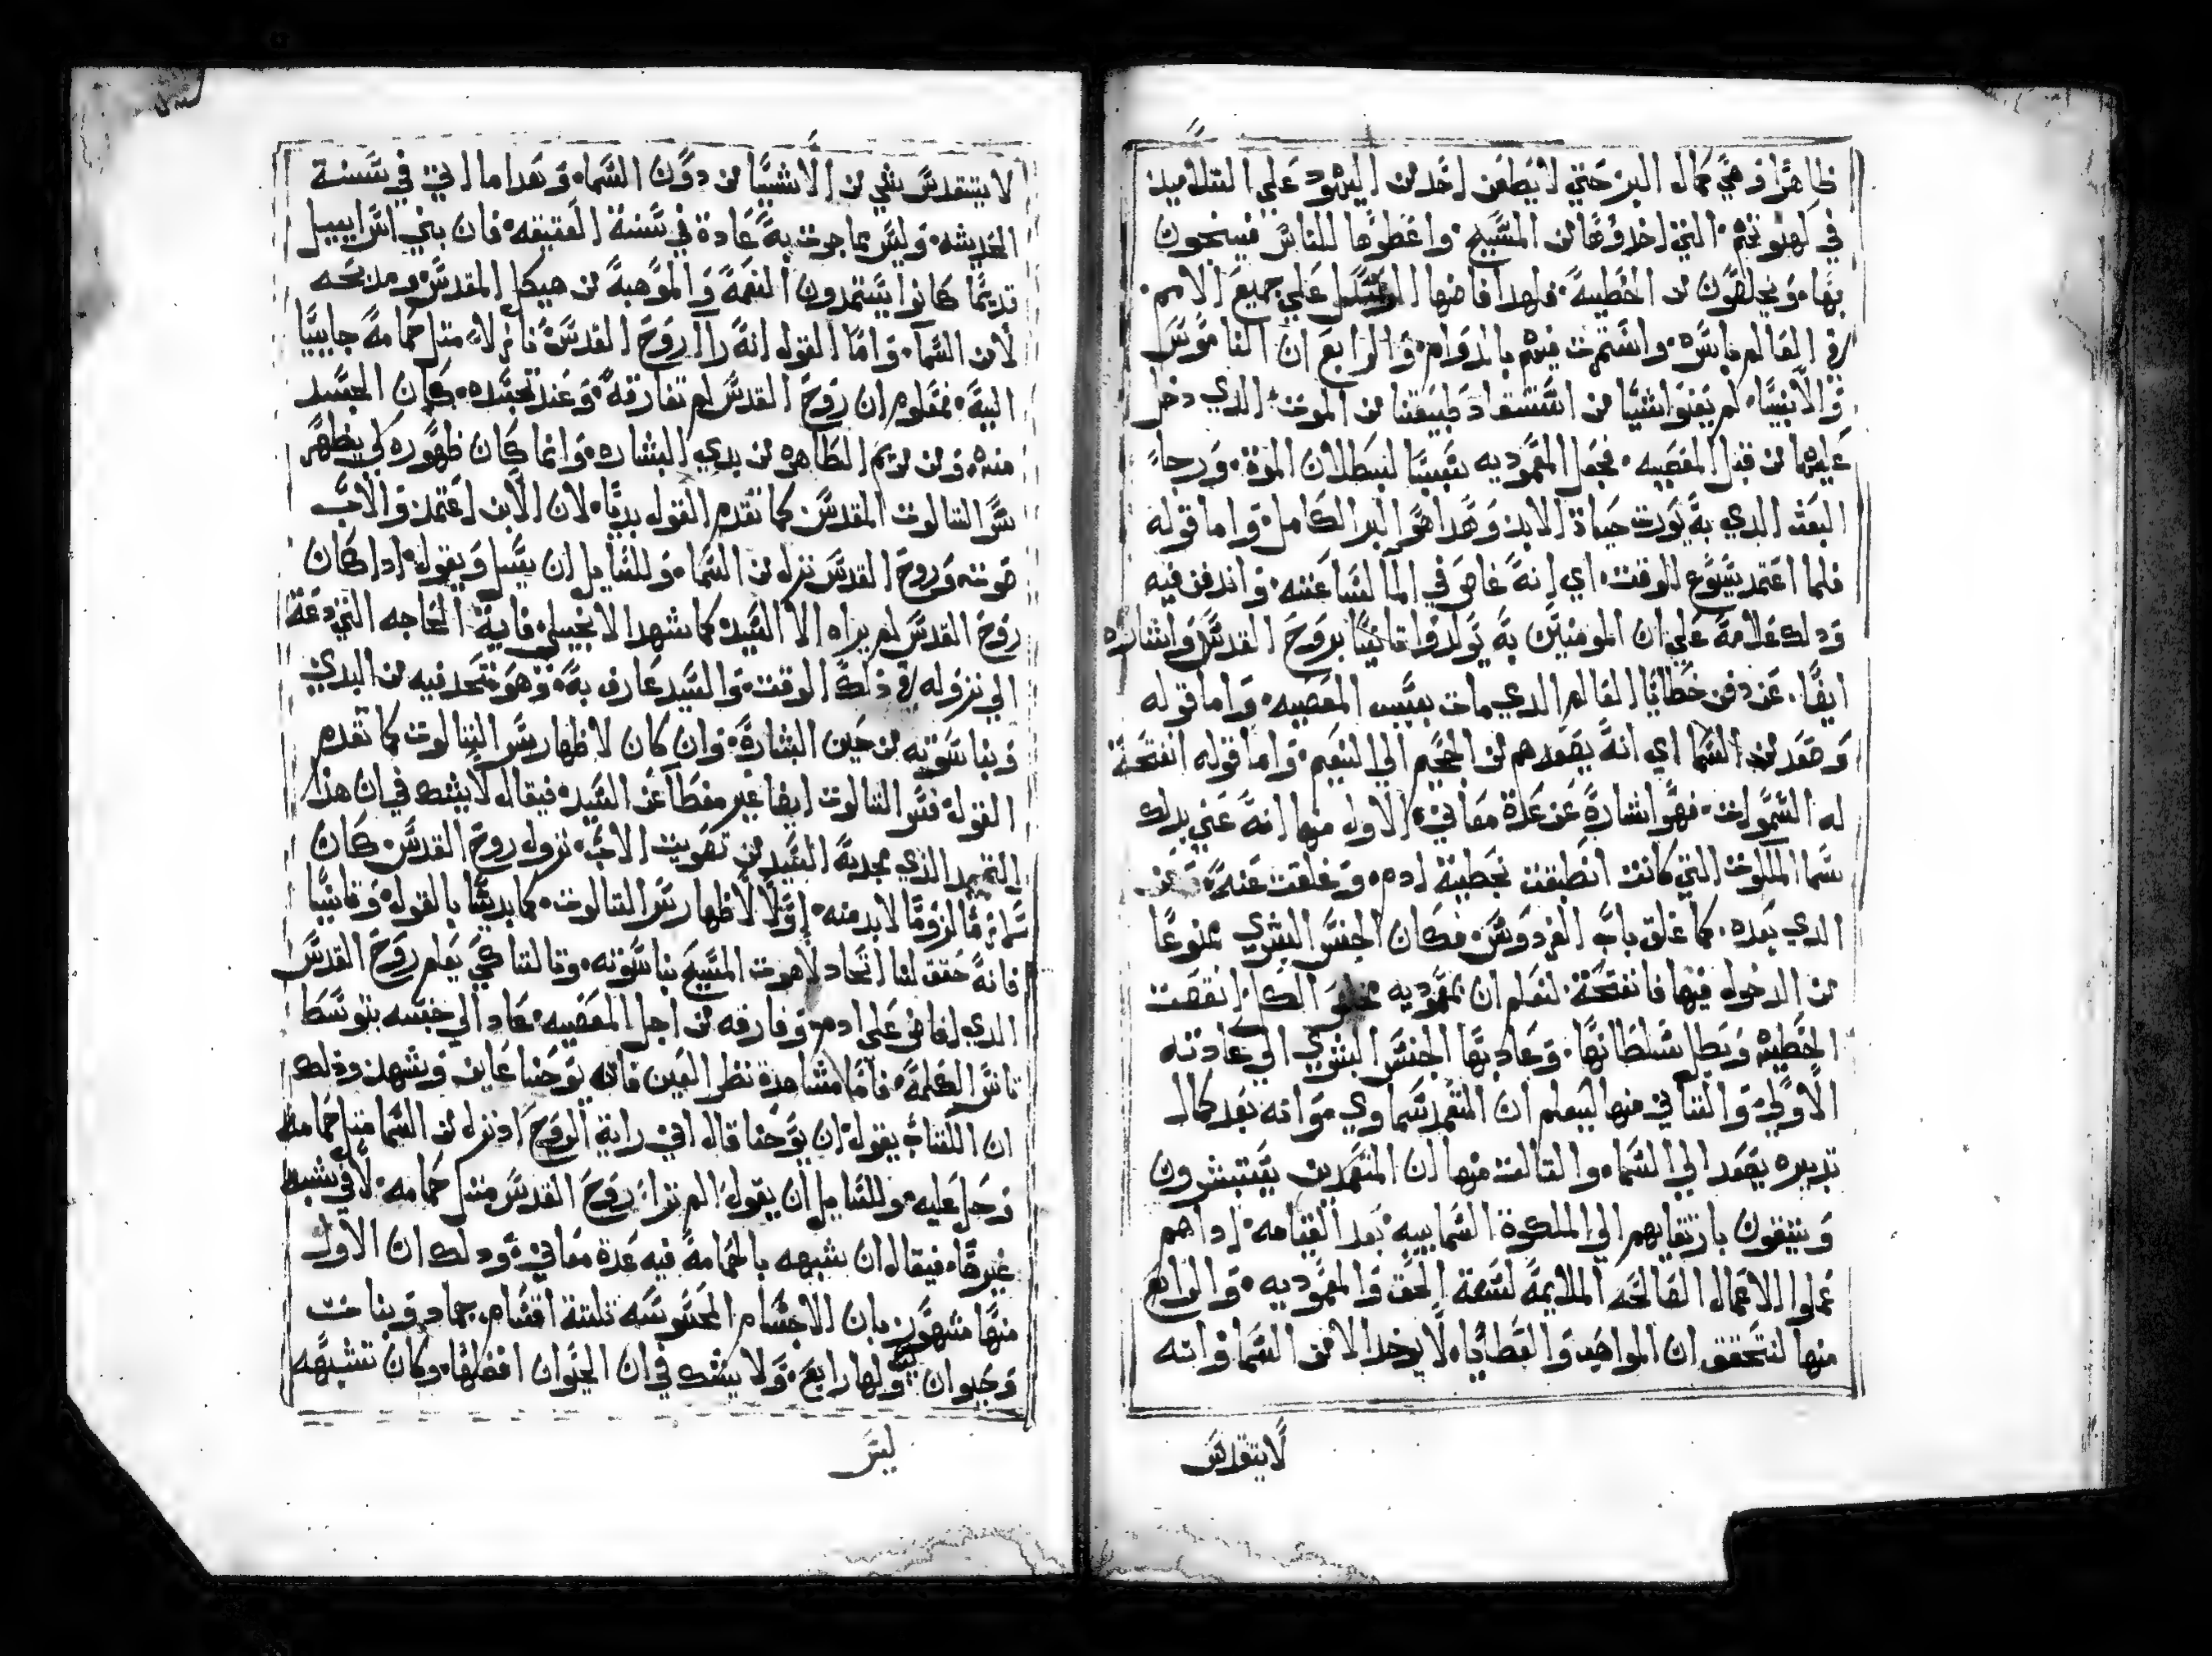 ظاهرًا وهي كمال البر حتي لا يطعن احد من اليهود علي التلاميد
في كهنوتهم التي اخدوها من المسيح واعطوها للناس فيسبحون
بها ويخلصون من الخطية فلهدا فاضها علي جميع الامم
في العالم باسره واستمرت فيهم بالدوام والرابع ان الناموس
والانبيا لم يغنوا شيا من استنقاد طبيعتنا من الموت الدي دخل
عليهما من قبل المعصيه فجعل المعموديه سببًا لبطلان الموة ورجاء
البعث الدي به نورت حياة الابد وهدا هو البر الكامل واما قوله
فلما اعتمد يسوع للوقت اي انه غاص في الما لساعته واندفن فيه
ودلك علامة علي ان المومنين به يولدوا تانيًا بروح القدس واشاره
ايضًا عن دفن خطايا العالم الدي مات بسبب المعصيه واما قوله
وصعد من السما اي انه يصعدهم من الجحيم الي النعيم واما قوله انفتحة
له السموات فهو اشارة عن عدة معاني الاول منها انه عني بدلك
سما الملكوت التي كانت انطبقت بخطية ادم وغلقت عنه وعن
الدي بعده كما غلق باب الفردوس فكان الجنس البشري ممنوعًا
من الدخول فيها فانفتحة لنعلم ان بمعموديه مخلص الكل انقضت
الخطيه وبطل سلطانها وعاد بها الجنس البشري الي عادته
الاولي والتاني منها ليعلم ان المتعمد سماوي هو انه بعد كمال
تدبيره يصعد الي السما والتالت منها ان المتعمدين يستبشرون
ويتيقون بارتقايهم الي الملكوة السماييه بعد القيامه ادا هم
عملوا الاعمال الصالحه الملايمة لسعة الحق والمعموديه والرابع
منها لنتحقق ان المواهب والعطايا لا يوخد الا من السما وانه
لا يتقدس
لا يتقدس شي من الاشيا من دون السما وهدا ما اتي في سنة
الحديثه وليس مما جرت به عادة في سنة العتيقه فان بني اسراييل
قديمًا كانوا يستمدون النعمة والموهبة من هيكل المقدس ومدبحه
لامن السما واما القول انه راا روح القدس نازلاً متل حمامة جاييًا
اليه فمعلوم ان روح القدس لم تفارقه وعند تجسده كان الجسد
منه ومن مريم الطاهره من بدي البشاره وانما كان ظهوره لكي يظهر
سر التالوت المقدس كما تقدم القول بديًا لان الابن اعتمد والاب
صوته وروح القدس نزل من السما وللسايل ان يسل ويقول ادا كان
روح القدس لم يراه الا السيد كما شهد الانجيلي فاية الحاجه التي دعة
الي نزوله في ذلك الوقت والسيد عارف به وهو متحد فيه من البدي
وبناسوته من حين البشارة وان كان لاظهار سر التالوت كما تقدم
القول فسر التالوت ايضا غير مغطا عن السيد فيقال لا يشك في ان هذا
التمجيد الذي مجد به السيد من تصويت الاب نزول روح القدس كان
سرًا لزومًا لابد منه اولاً لاظهار سر التالوت كما بديتا بالقول وتانيًا
فانه حقق لنا اتحاد لاهوت المسيح بناسوته وتالتا كي يعلم روح القدس
الدي افاض علي ادم وفارقه من اجل المعصيه عاد الي جنسه بتوسط
تانس الكلمة فاما مشاهدة نظر العين فانه يوحنا عاين وشهد ودلك
ان الكتاب يقول ان يوحنا قال اني راية الروح اد نزل من السما متل حمامه
وحل عليه وللسايل ان يقول الم نزل روح القدس متل حمامه لا في شبه
غيرها فيقال ان شبهه بالحمامة فيه عدة معاني ودلك ان الاول
منها مشهور بان الاجسام المحسوسه تلتة اقسام جماد ونبات
وحيوان ليس لها رابع ولا يشك في ان الحيوان افضلها وكان تشبيهه
ليس